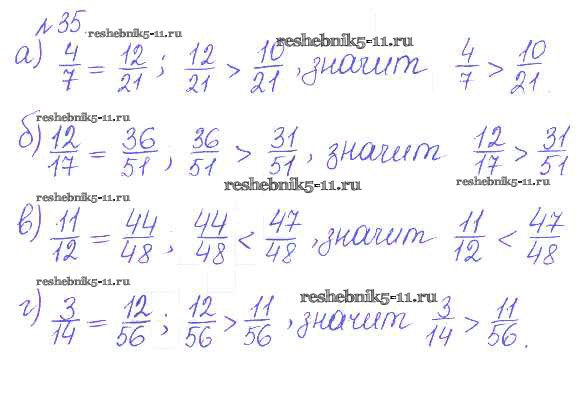 №35. reshebnik5-11.ru
reshebnik5-11.ru
а) 4/7 = 12/21 ; 12/21 > 10/21 , значит 4/7 > 10/21.
reshebnik5-11.ru
б) 12/17 = 36/51 ; 36/51 > 31/51 , значит 12/17 > 31/51
reshebnik5-11.ru
reshebnik5-11.ru
reshebnik5-11.ru
в) 11/12 = 44/48 ; 44/48 < 47/48 , значит 11/12 < 47/48
reshebnik5-11.ru
reshebnik5-11.ru
г) 3/14 = 12/56 ; 12/56 > 11/56 , значит 3/14 > 11/56.